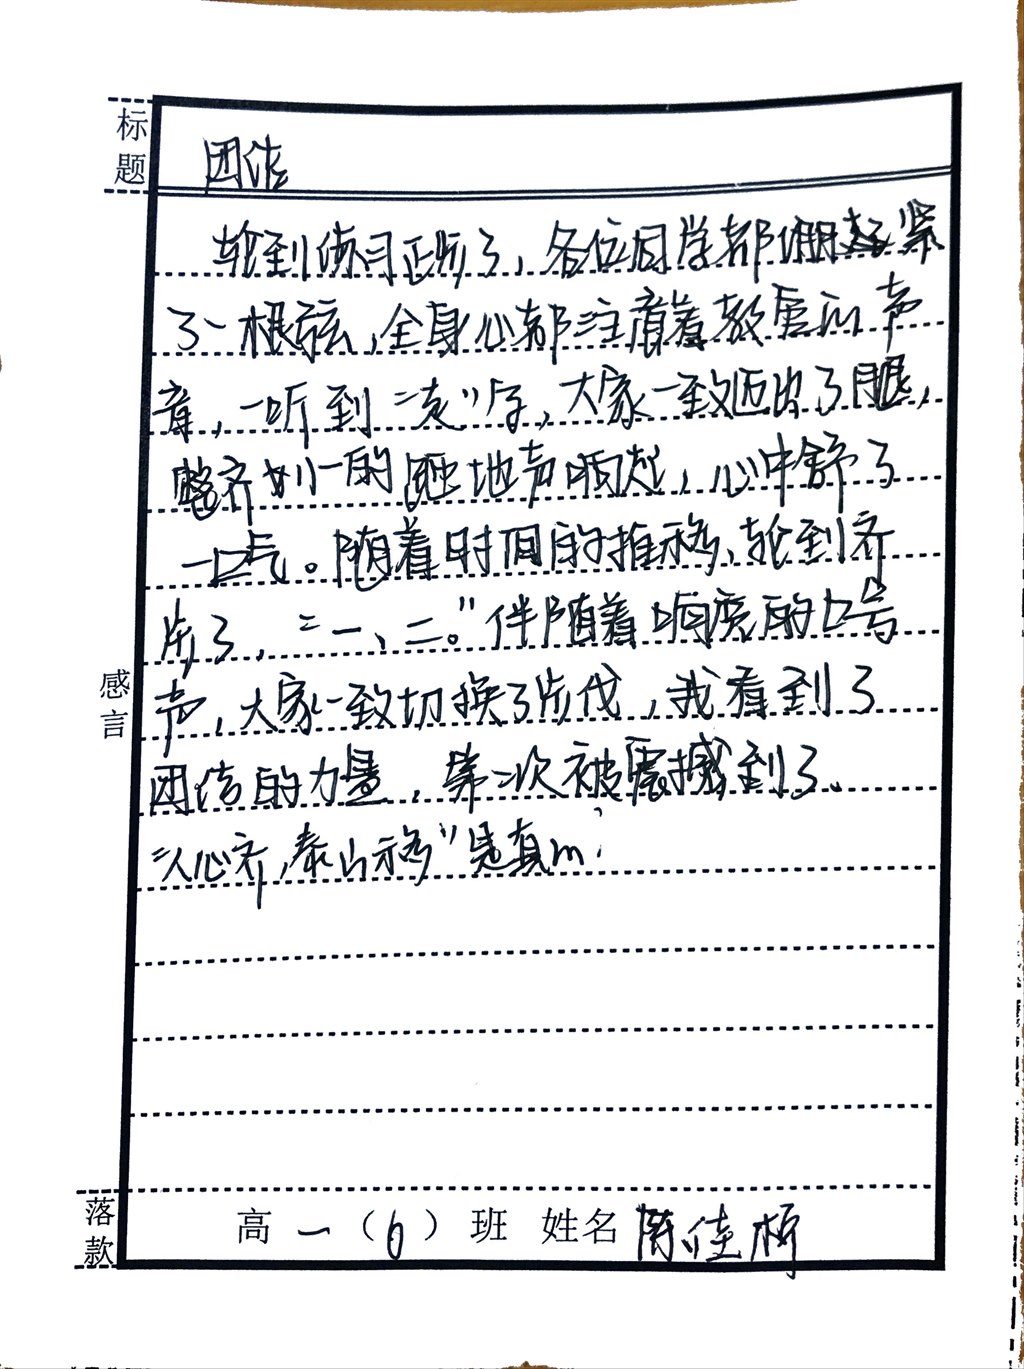 标题
团结
轮到练习正步了，各位同学都绷紧
了一根弦，全身心都注意着教官的声
音，一听到“走”字，大家一致迈出了腿，
整齐划一的踏地声响起，心中舒了
一口气。随着时间的推移、轮到齐
步了，“一、二。”伴随着响亮的口号
声，大家一致切换了步伐，我看到了
团结的力量，第一次被震撼到了。
“人心齐，泰山移”是真的，
感言
落款
高一（6）班 姓名 陈佳